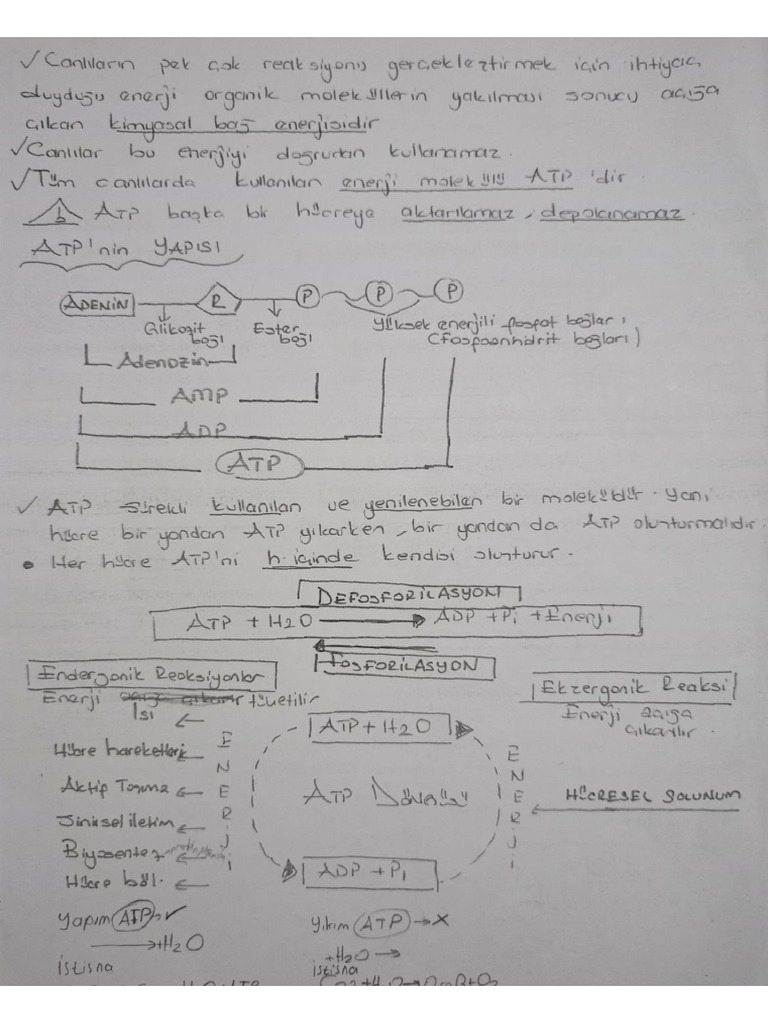 ✓ Canlıların pek çok reaksiyonu gerçekleştirmek için ihtiyaç
duyduğu enerji organik moleküllerin yakılması sonucu açığa
çıkan kimyasal bağ enerjisidir
✓ Canlılar bu enerjiyi doğrudan kullanamaz.
✓ Tüm canlılarda kullanılan enerji molekülü ATP'dir.
ATP başka bir hücreye aktarılamaz, depolanamaz.
ATP'nin YAPISI
ADENİN R P P P
Glikozit bağı Ester bağı Yüksek enerjili fosfat bağları
(fosfoanhidrit bağları)
Adenozin
AMP
ADP
ATP
✓ ATP sürekli kullanılan ve yenilenebilen bir moleküldür. Yani
hücre bir yandan ATP yıkarken, bir yandan da ATP oluşturmalıdır.
• Her hücre ATP'ni h. içinde kendisi oluşturur.
DEFOSFORİLASYON
ATP + H2O → ADP + Pi + Enerji
FOSFORİLASYON
Endergonik Reaksiyonlar
Enerji tüketilir
Ekzergonik Reaksi
Enerji açığa
çıkarılır.
Isı
Hücre hareketleri
Aktif Taşıma
Sinirsel iletim
Biyosentez
Hücre böl.
ENERJİ
ATP + H2O
ATP Döngüsü
ADP + Pi
ENERJİ
HÜCRESEL SOLUNUM
Yapım ATP ✓
→ +H2O
İstisna
Yıkım ATP → X
+H2O →
İstisna